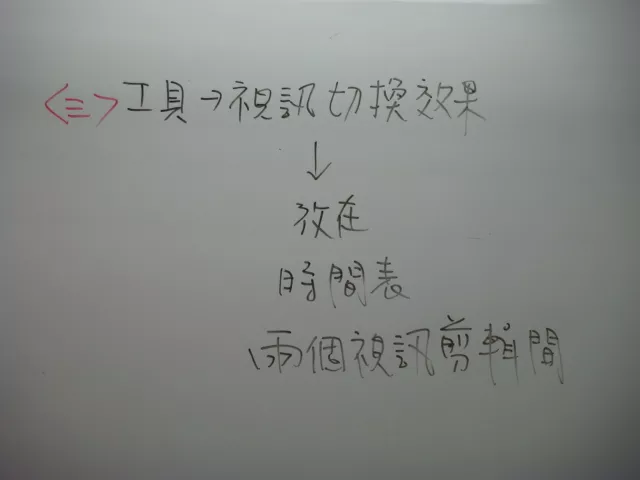 <三>工具→視訊切換效果
↓
放在
時間表
兩個視訊剪輯間